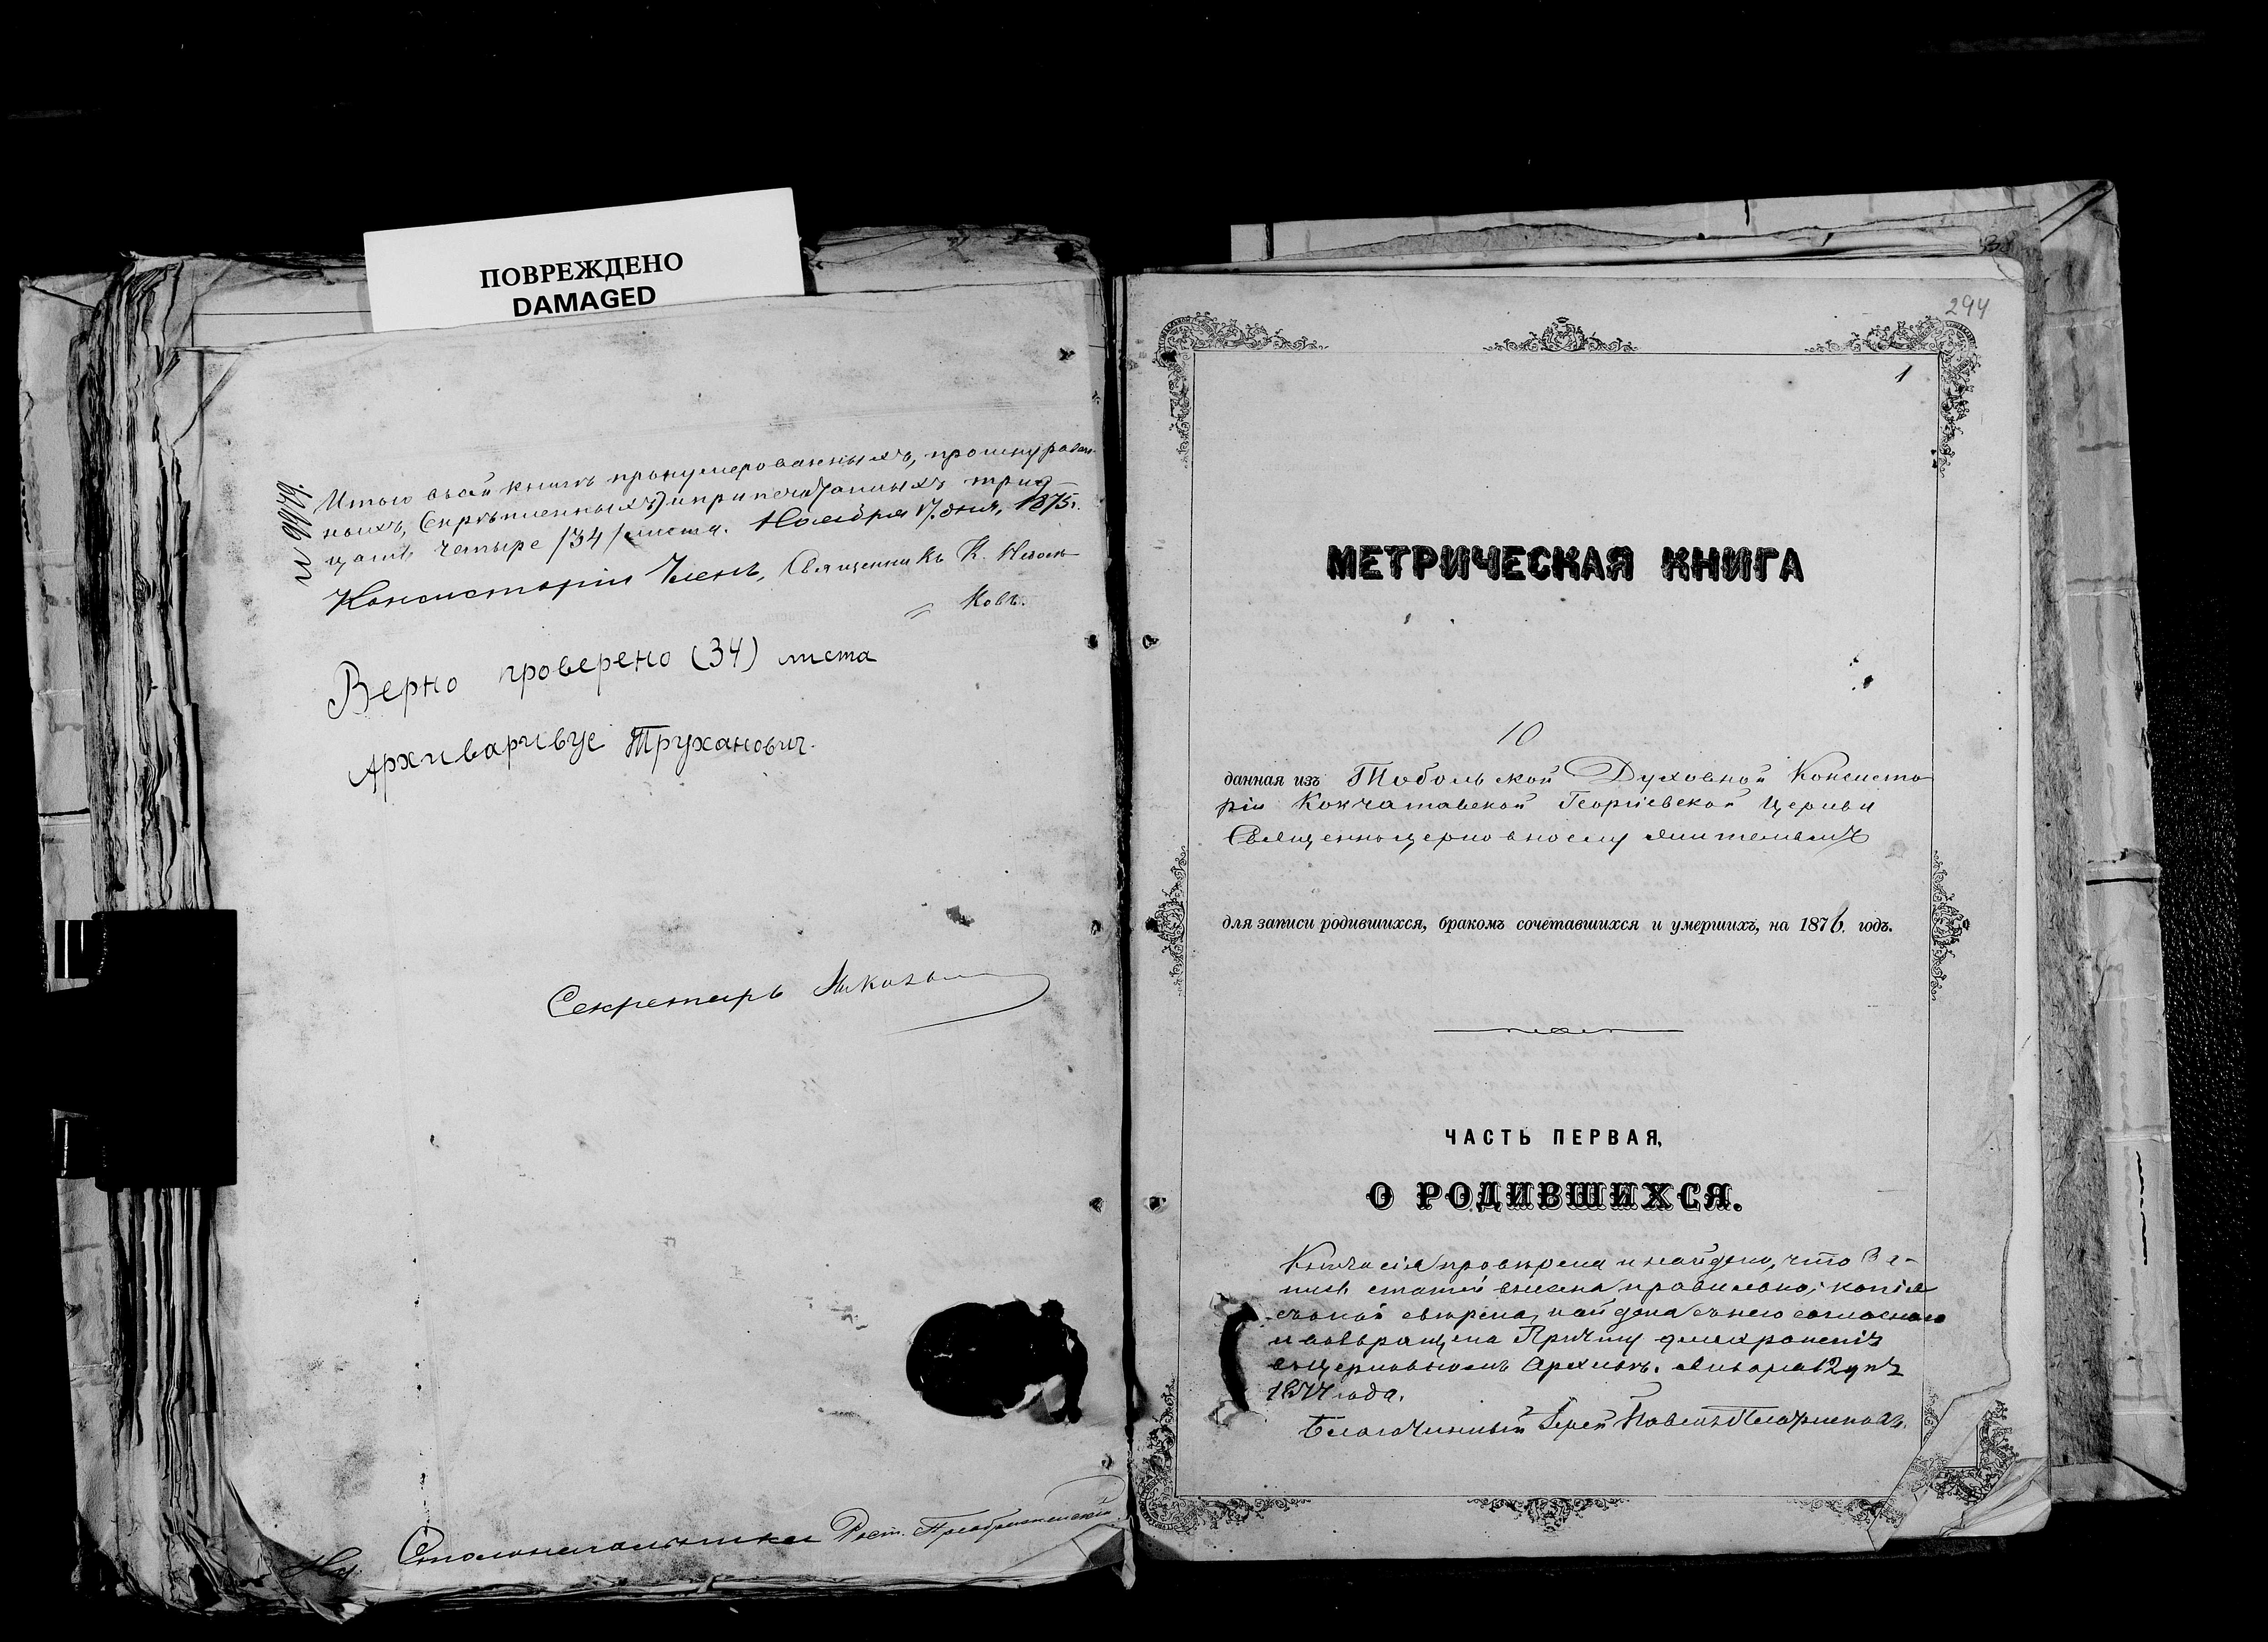 ПОВРЕЖДЕНО
DAMAGED
Итого въ сей книгѣ пронумерованныхъ, прошнурован-
ныхъ, (скрѣпленныхъ) и припечатанныхъ трид-
цать четыре /34/ листа. Ноября 17 дня, 1875 г.
Консисторіи Членъ, Священникъ К.
Верно проверено (34) листа
Архивариус Труханович.
Секретарь
Столоначальника Преображенскій
294
1
МЕТРИЧЕСКАЯ КНИГА
10
данная изъ Тобольской Духовной Консисто-
ріи Кокчатавской Георгіевской Церкви
Священноцерковнослужителямъ
для записи родившихся, бракомъ сочетавшихся и умершихъ, на 1876. годъ.
ЧАСТЬ ПЕРВАЯ,
О РОДИВШИХСЯ.
Книга сія провѣрена и найдено, что За-
пись статей ведена правильно; копія
съ оной свѣрена, найдена съ нею согласною
и возвращена Причту для храненія
въ церковномъ Архивѣ. Января 12 дня
1877 года.
Благочинный Іерей Павелъ